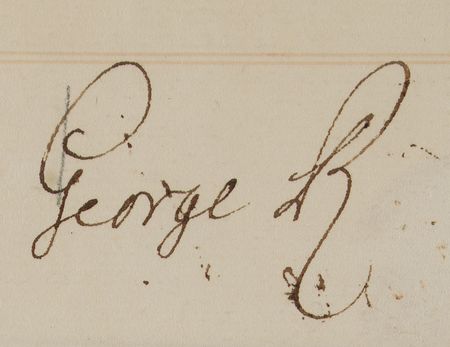 George R